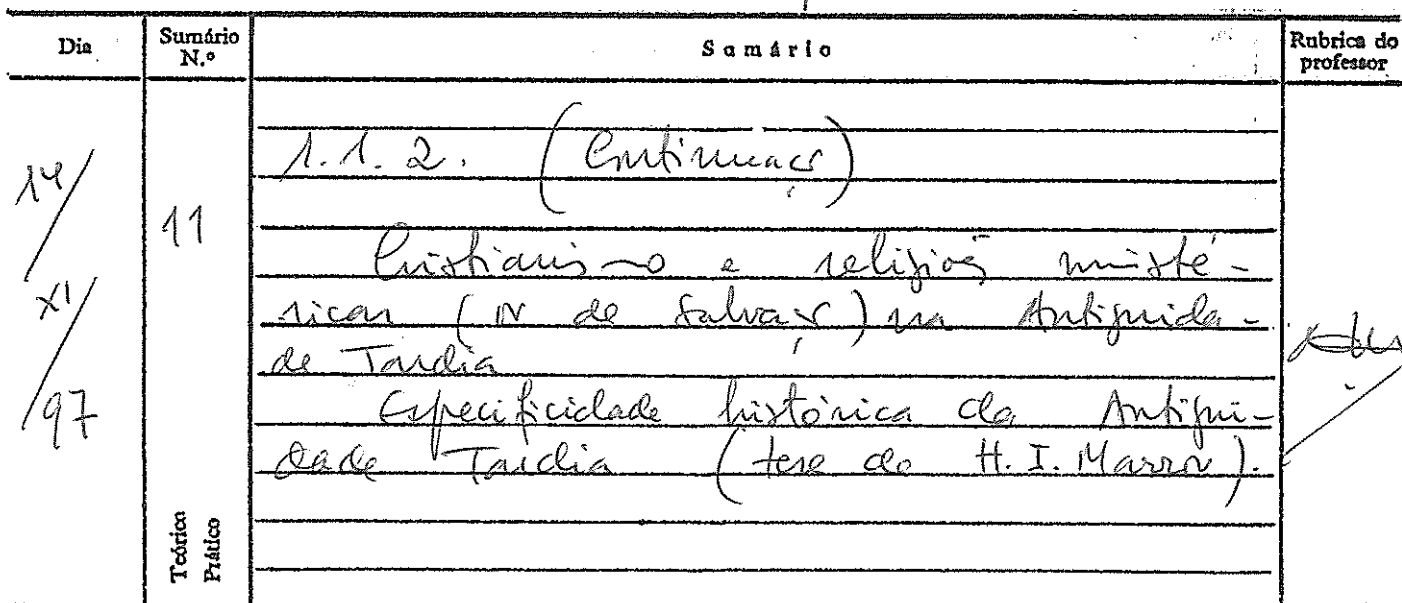 Dia Sumário N.º Sumário Rubrica do professor
14/XI/97 11
1.1.2. (Continuação)
Cristianismo e religiões misté-
ricas (ou de salvação) na Antiguida-
de Tardia
Especificidade histórica da Antigui-
dade Tardia (tese de H. I. Marrou).
Teórico
Prático